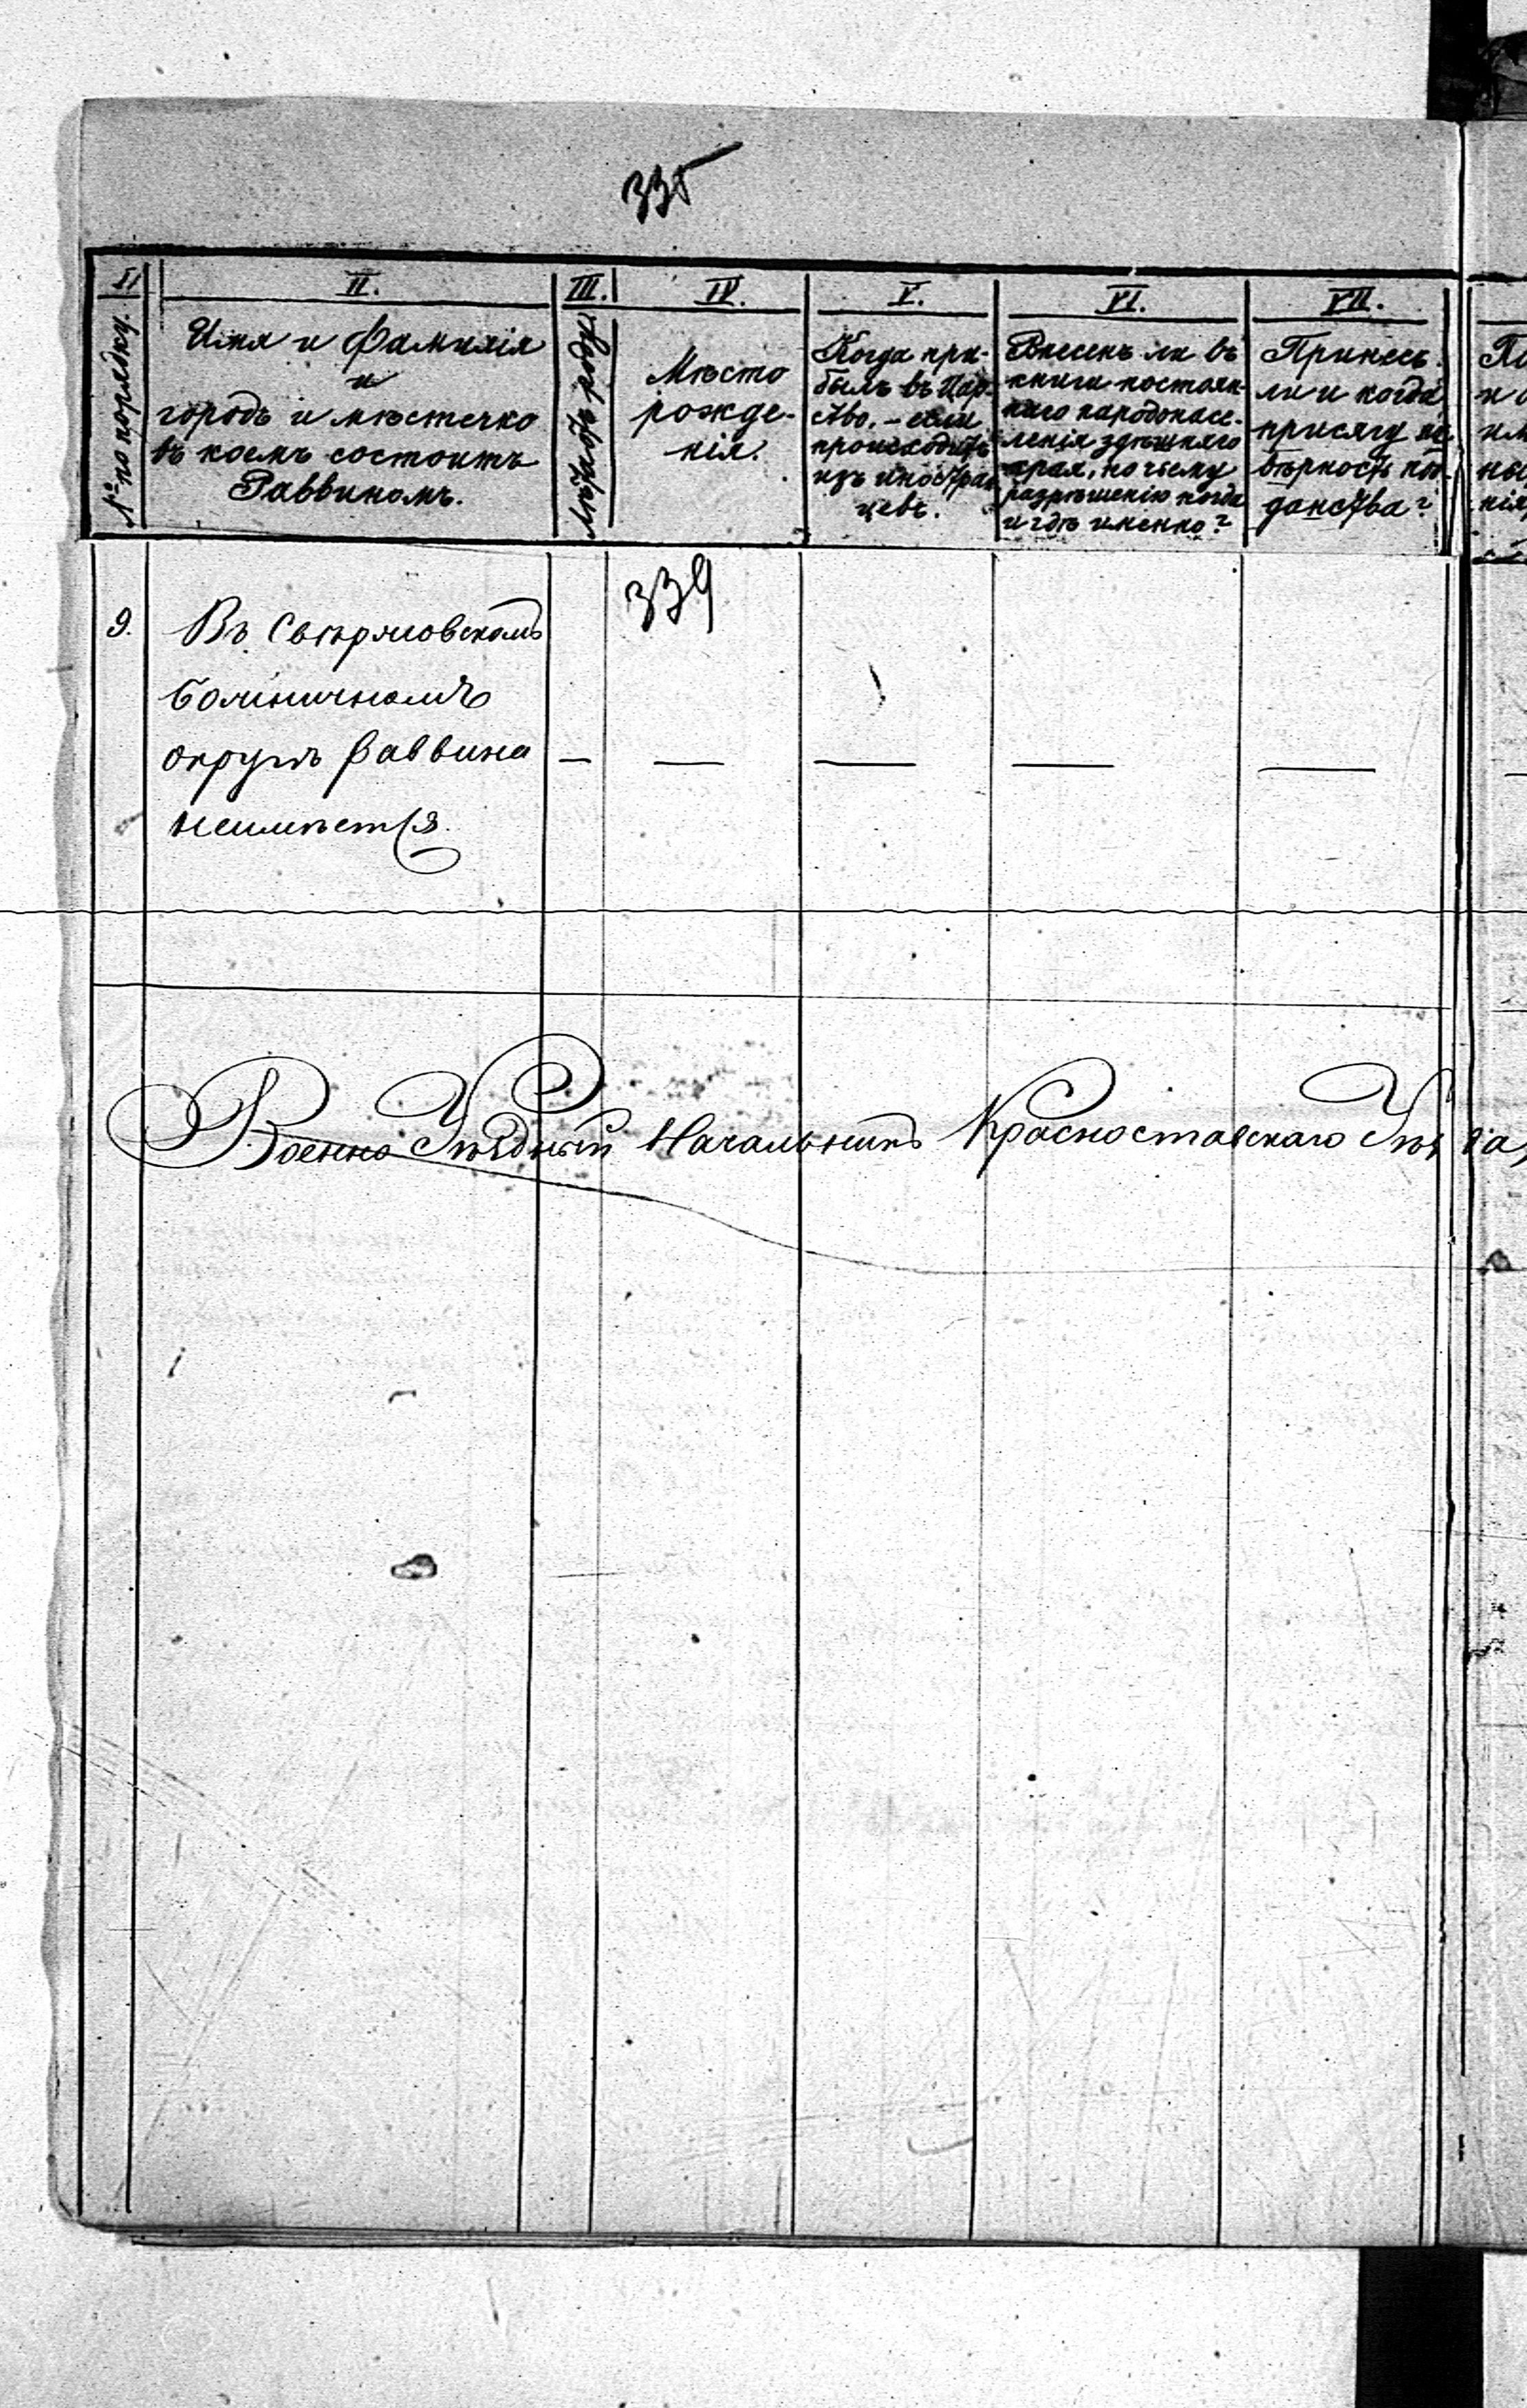 335
I
II.
III.
IV.
V.
VI.
VII.
№ по порядку.
Имя и Фамилія
и
городъ и мѣстечко
въ коемъ состоитъ
Раввиномъ.
Лѣта
Мѣсто
рожде-
нія.
Когда при-
былъ въ Цар-
ство, – если
происходитъ
изъ иностран
цевъ.
Внесенъ ли въ
книги постоян-
наго народонасе-
ленія здѣшняго
края, по чьему
разрѣшенію когда
и гдѣ именно?
Принесъ
ли и когда
присягу на
вѣрность под-
данства?
339
9.
Въ
округѣ Раввина
неимѣется.
Военно Уѣздный Начальникъ Красноставскаго Уѣзда,